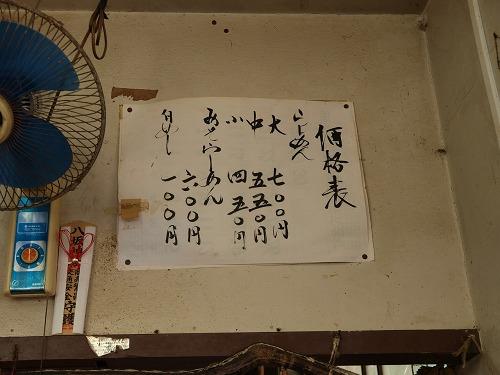 価格表
らーめん
大 七〇〇円
中 五五〇円
小 四五〇円
みそらーめん
六〇〇円
一〇〇円